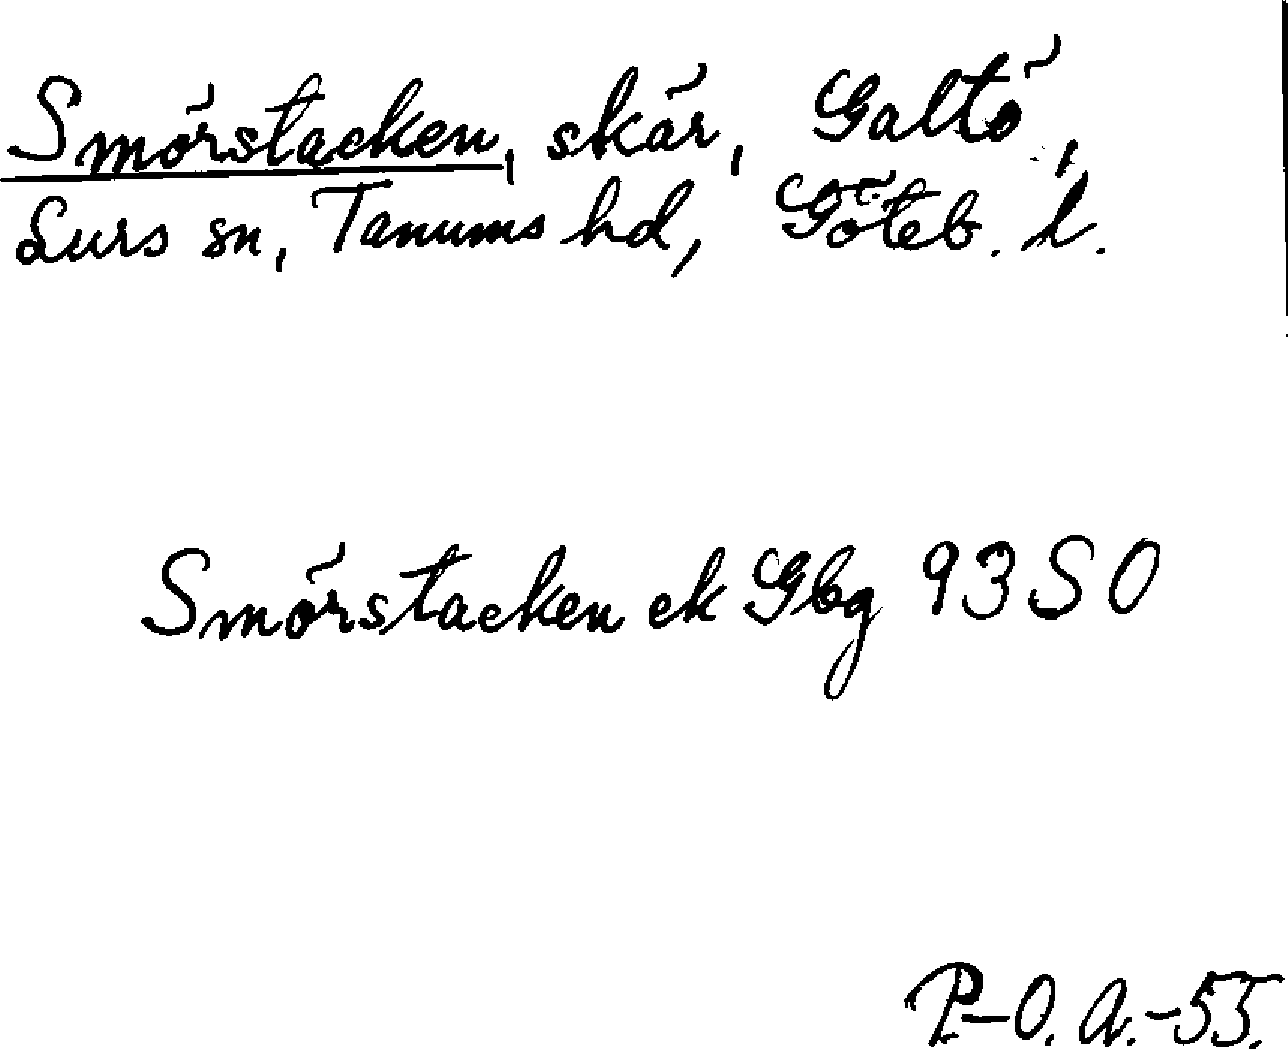 Smörstacken, skär, Galtö,
Lurs sn, Tanums hd, Göteb. l.
Smörstacken ek Gbg 93 SO
P-O. A.-55.